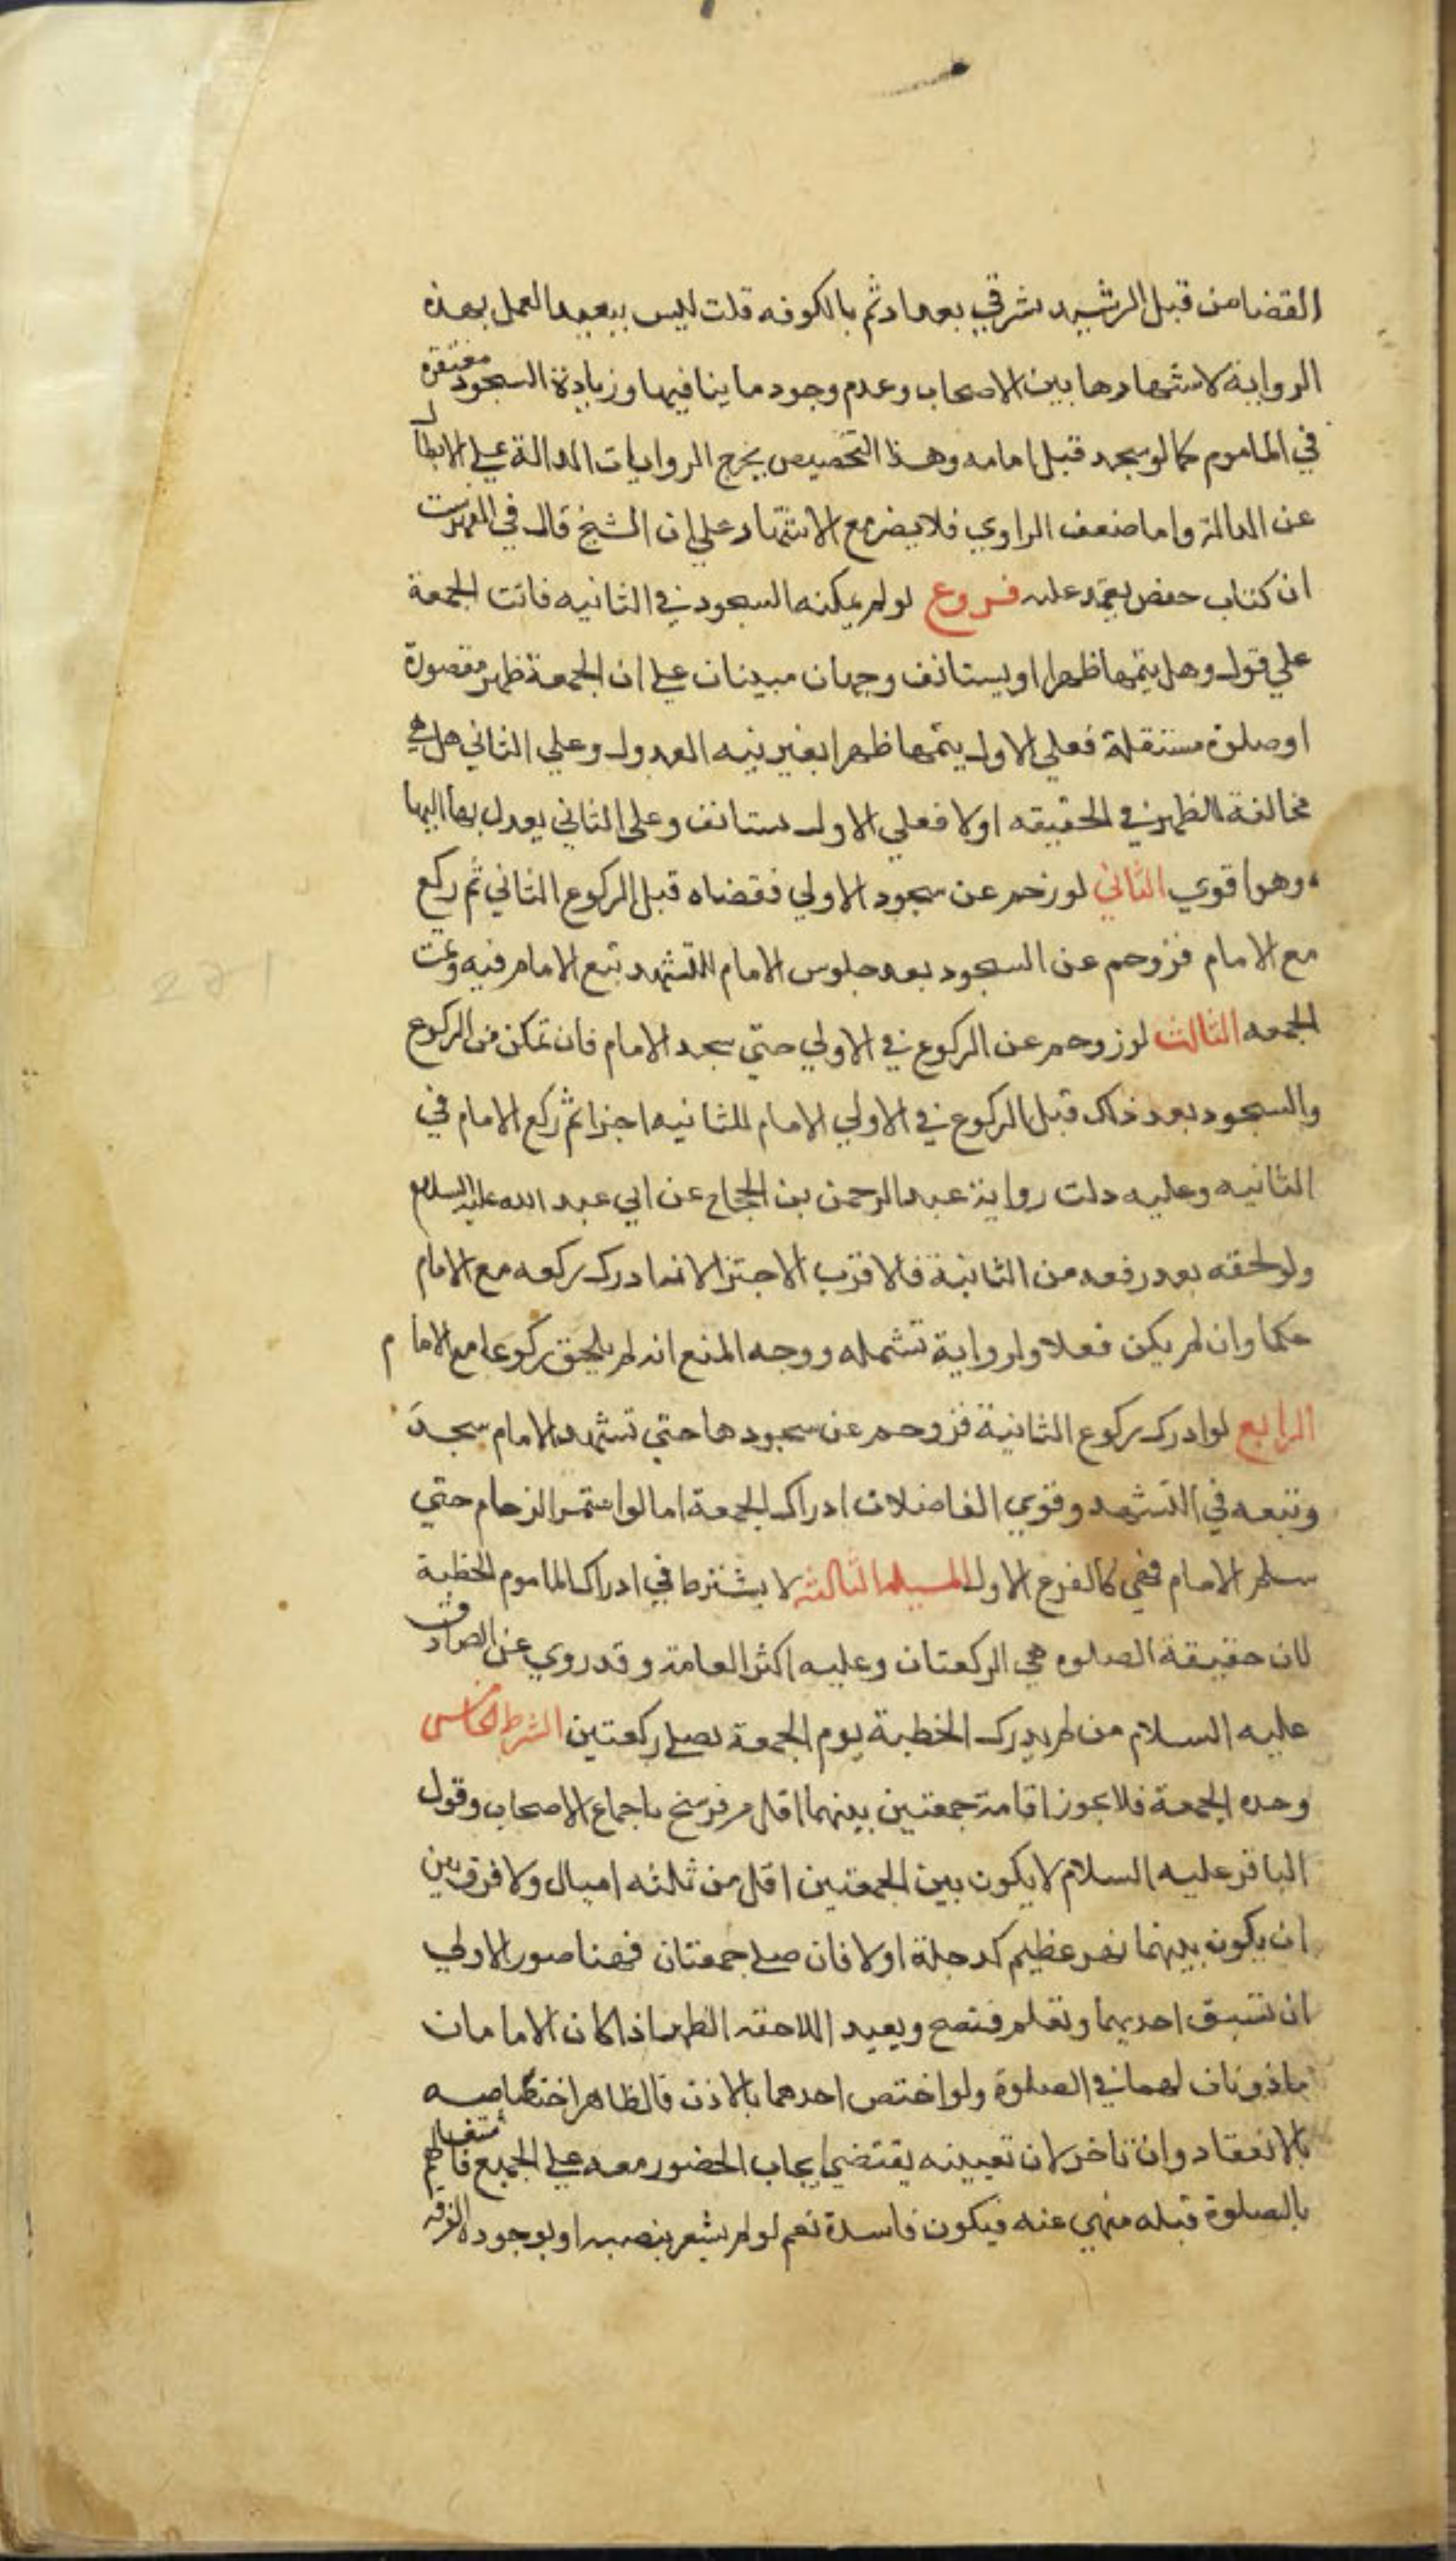 القضا من قبل الرشيد بشرقي بغداد ثم بالكوفه قلت ليس ببعيد العمل بهذه
الرواية لاشتهارها بين الاصحاب وعدم وجود ما ينافيها وزيادة السجود مغتفرة
في الماموم كما لو سجد قبل امامه وهذا التخصيص يخرج الروايات الدالة علي الابطال
عن الدالة واما ضعف الراوي فلا يضر مع الاشتهار علي ان الشيخ قال في الفهرست
ان كتاب حفص يعتمد عليه فروع لو لم يمكنه السجود في الثانيه فاتت الجمعة
علي قول وهل يتمها ظهرا او يستانف وجهان مبينان علي ان الجمعة ظهر مقصورة
او صلوة مستقلة فعلي الاول يتمها ظهرا بغير نيه العدول وعلي الثاني هل هي
مخالفة للظهر في الحقيقه اولا فعلي الاول يستانف وعلي الثاني يعدل بها اليها
وهو اقوي الثاني لو زحم عن سجود الاولي فقضاه قبل الركوع الثاني ثم ركع
مع الامام فزوحم عن السجود بعد جلوس الامام للتشهد تبع الامام فيه وتمت
الجمعه الثالث لو زوحم عن الركوع في الاولي حتي سجد الامام فان تمكن من الركوع
والسجود بعد ذلك قبل الركوع في الاولي الامام للثانيه اجزا ثم ركع الامام في
الثانيه وعليه دلت رواية عبد الرحمن بن الحجاج عن ابي عبد الله عليه السلام
ولو لحقه بعد رفعه من الثانية فالاقرب الاجتزا لانه ادرك ركعه مع الامام
حكما وان لم يكن فعلا والرواية تشمله ووجه المنع انه لم يلحق ركوعا مع الامام
الرابع لو ادرك ركوع الثانية فزوحم عن سجودها حتي تشهد الامام سجد
وتبعه في التشهد وقوي الفاضلان ادراك الجمعة اما لو استمر الزحام حتي
سلم الامام ففي كالفرع الاول المسيله الثالثه لا يشترط في ادراك الماموم الخطبة
لان حقيقة الصلوه هي الركعتان وعليه اكثر العامة وقد روي عن الصادق
عليه السلام من لم يدرك الخطبة يوم الجمعة يصلي ركعتين الشرط الخامس
وحده الجمعة فلا يجوز اقامة جمعتين بينهما اقل من فرسخ باجماع الاصحاب وقول
الباقر عليه السلام لا يكون بين الجمعتين اقل من ثلثه اميال ولا فرق بين
ان يكون بينهما نهر عظيم كدجلة اولا فان صلي جمعتان فهنا صور الاولي
ان تسبق احديهما وتعلم فتصح ويعيد اللاحقه الظهر اذا كان الامامان
ماذونان لهما في الصلوة ولو اختص احدهما بالاذن فالظاهر اختصاصه
بالانعقاد وان تاخر لان تعيينه يقتضي ايجاب الحضور معه علي الجميع فاشتغالهم
بالصلوة قبله منهي عنه فيكون فاسدة نعم لو لم يشعر بنصبه او بوجود الفرقه